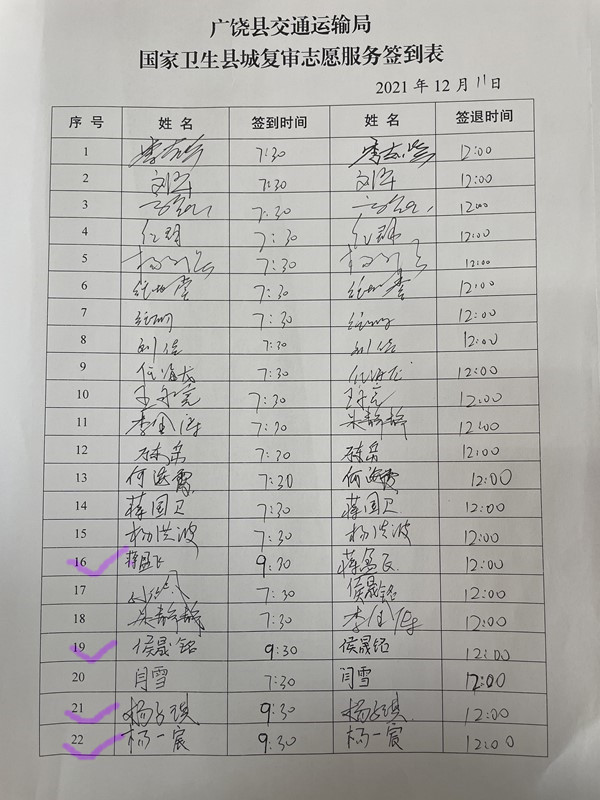 广饶县交通运输局
国家卫生县城复审志愿服务签到表
2021 年 12 月 11 日
序 号 姓 名 签到时间 姓 名 签退时间
1 7:30 12:00
2 刘军 7:30 刘军 12:00
3 7:30 12:00
4 任朋 7:30 任朋 12:00
5 7:30 12:00
6 7:30 12:00
7 7:30 12:00
8 刘信 7:30 刘信 12:00
9 任海龙 7:30 任海龙 12:00
10 7:30 12:00
11 李金海 7:30 朱静静 12:00
12 7:30 12:00
13 何海霞 7:30 何海霞 12:00
14 蒋国卫 7:30 蒋国卫 12:00
15 杨洪波 7:30 杨洪波 12:00
16 蒋盈飞 9:30 蒋盈飞 12:00
17 7:30 侯晟铭 12:00
18 朱静静 7:30 李金海 12:00
19 侯晟铭 9:30 侯晟铭 12:00
20 闫雪 7:30 闫雪 12:00
21 9:30 12:00
22 杨一宸 9:30 杨一宸 12:00